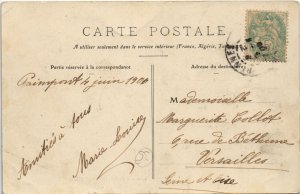 CARTE POSTALE
A utiliser seulement dans le service intérieur (France, Algérie, Tu
Partie réservée à la correspondance
Adresse du destina
Paimpont 4 juin 1904
Amitiés à tous
Marie Louise
Mademoiselle
Marguerite Collot
rue de Béthune
Versailles
Seine et Oise